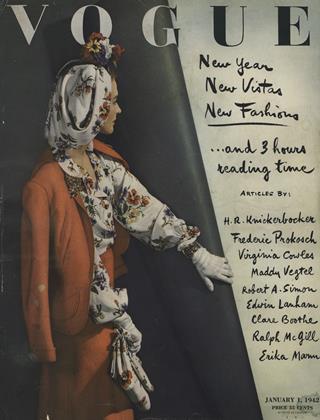 VOGUE
New Year
New Vistas
New Fashions
...and 3 hours
reading time
ARTICLES BY:
H.R. Knickerbocker
Frederic Prokosch
Virginia Cowles
Maddy Vegtel
Robert A. Simon
Edwin Lanham
Clare Boothe
Ralph McGill
Erika Mann
JANUARY 1, 1942
PRICE 35 CENTS